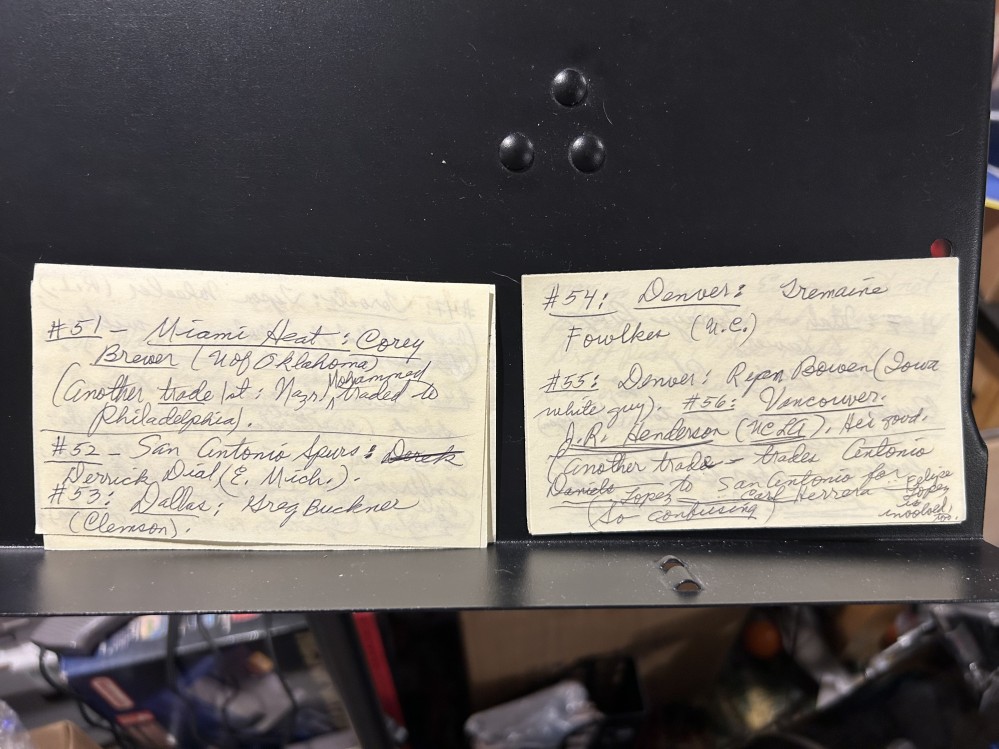 #51 - Miami Heat: Corey
Brewer (U of Oklahoma)
(Another trade 1st: Nazr Mohammed traded to
Philadelphia).
#52 - San Antonio Spurs: Derek
Derrick Dial (E. Mich.).
#53: Dallas: Greg Buckner
(Clemson).
#54: Denver: Tremaine
Fowlkes (U.C.)
#55: Denver: Ryan Bowen (Iowa
white guy). #56: Vancouver.
J.R. Henderson (UCLA). He's good.
(Another trade - trades Antonio
Daniels to San Antonio for
Lopez Carl Herrera
(So confusing)
Felipe
Lopez
is
involved,
too.